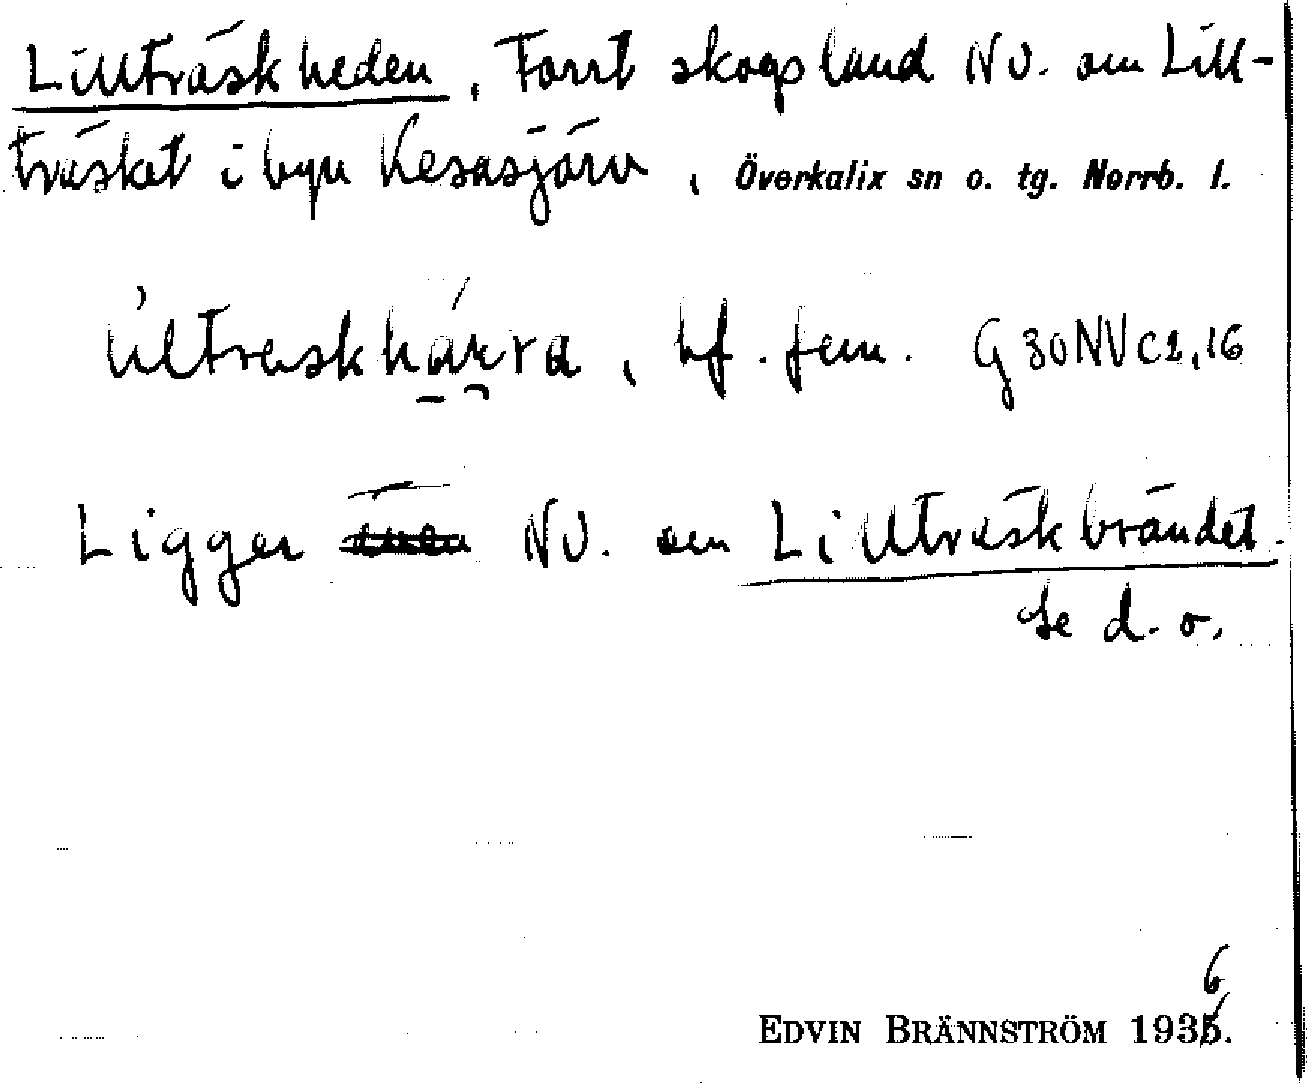 Lillträskheden, Torrt skogsland NV. om Lill-
träsket i byn Kesasjärv, Överkalix sn o. tg. Norrb. l.
bf. fem. G 30 NV c2,16
Ligger NV. om Lillträskbrändet.
Se d. o.
6
EDVIN BRÄNNSTRÖM 1935.